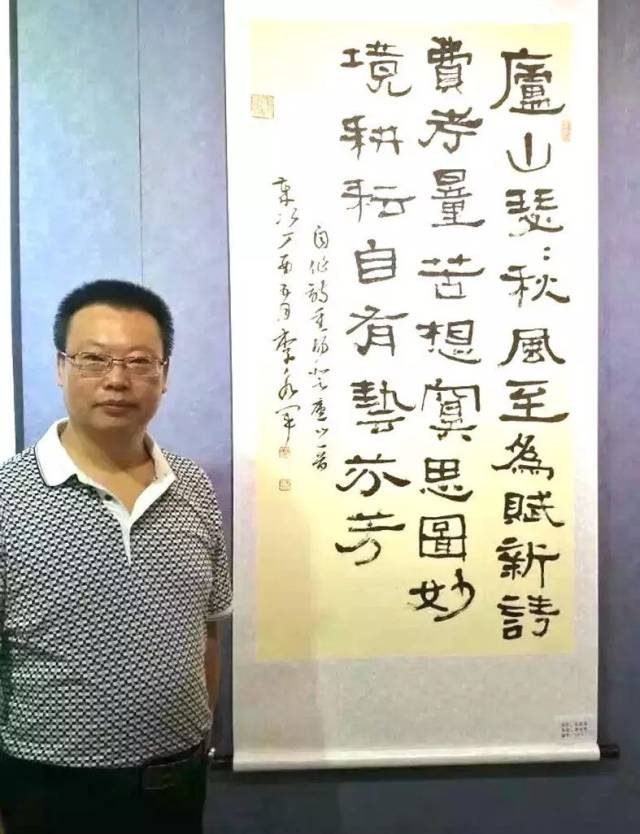 廬山瑟〻秋風至為賦新詩
費考量苦想冥思圖妙
境耕耘自有藝芬芳
自作詩重陽登廬山一首
歲次丁酉五月李永軍